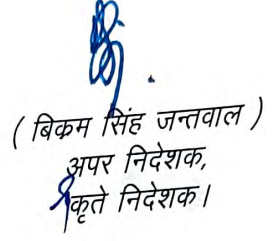 ( बिक्रम सिंह जन्तवाल )
अपर निदेशक,
कृते निदेशक।